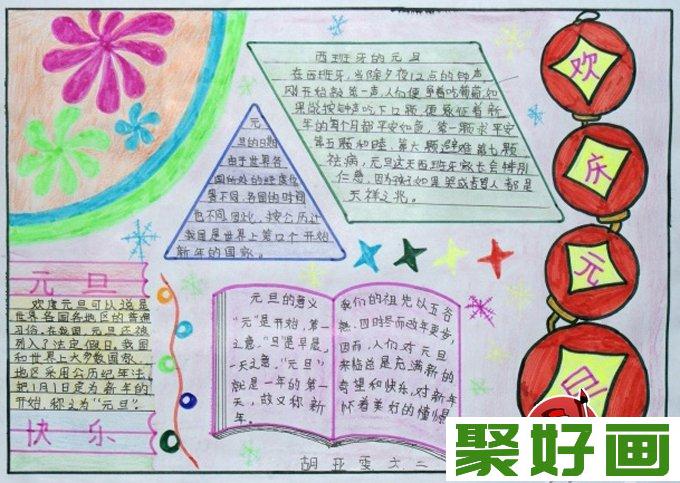 西班牙的元旦
在西班牙,当除夕夜12点的钟声
刚开始敲第一声,人们便争着吃葡萄,如
果能按钟声吃下12颗,便象征着新
年的每个月都平安如意,第一颗求平安
第五颗和睦,第六颗避难,第七颗
祛病,元旦这天西班牙家长会特别
仁慈,因为孩子如果哭或者骂人都是
不祥之兆。
元
旦的日期
由于世界各
国所处的经度位
置不同,各国的时间
也不同,因此,按公历计
我国是世界上第12个开始
新年的国家。
欢
庆
元
旦
元旦
欢度元旦可以说是
世界各国各地区的普遍
习俗,在我国,元旦还被
列入了法定假日,我国
和世界上大多数国家、
地区采用公历纪年法,
把1月1日定为新年的
开始,称之为“元旦”。
快乐
元旦的意义
“元”是开始,第一
之意,“旦”是早晨,
一天之意。“元旦”
就是一年的第一
天,故又称新
年。
我们的祖先以五谷
熟、四时尽而改年更岁,
因而,人们对元旦
来临总是充满新的
希望和快乐,对新年
怀着美好的憧憬
胡亚雯 六二
聚好画